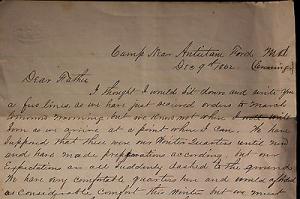 Camp Near Antietam Ford, Md.
Dec 9th 1862 (Evening)
Dear Father
I thought I would sit down and write you
a few lines, as we have just received orders to march
tomorrow morning but we know not when I will write
soon as we arrive at a point where I can. We have
supposed that these were our Winter Quarters until now
and have made preparations according, but our
expectations are all suddenly dashed to the ground.
We have very comfortable quarters here and would afford
us considerable comfort this Winter but we must